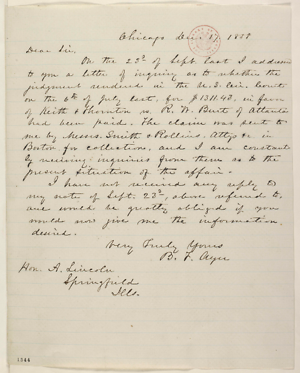 Chicago Dec. 1858
Dear Sir,
On the 23d of Sept. last I address
to you a letter of inquiry as to whether the
judgment rendered in the U.S. Cir. Court
on the 6th of July last, for $1311.43, in favor
of Keith & Thornton vs. B. W. of Atlanta
had been paid. The claim was sent to
me by Messrs. Smith & Rollins, Attys or in
for collection, and I am constant
ly receiving inquiries from them as to the
present situation of the affair.
I have not received any reply to
my note of Sept. 23d, above referred to,
and would be greatly obliged if you
would now give me the information
desired.
Very Truly Yours
B. F. Ayer
Hon. A. Lincoln
Springfield
Ills.
1544